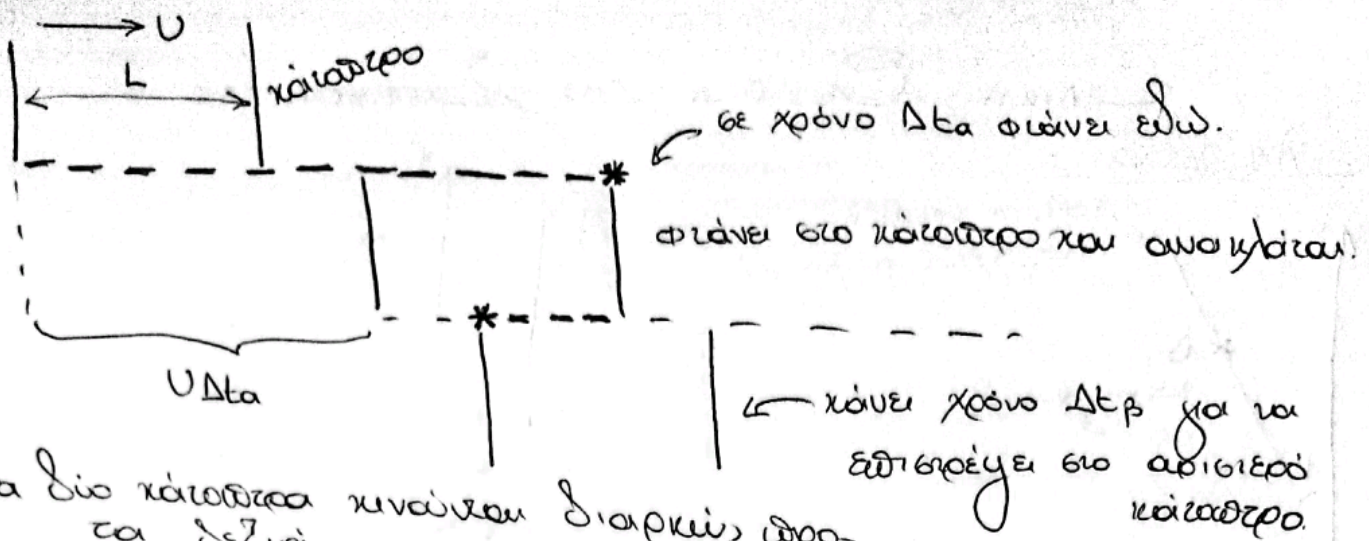 υ
L
κάτοπτρο
σε χρόνο Δta φτάνει εδώ.
φτάνει στο κάτοπτρο και ανακλάται.
υΔta
κάνει χρόνο Δtβ για να
επιστρέψει στο αριστερό
κάτοπτρο.
α δύο κάτοπτρα κινούνται διαρκώς προ-
τα δεξιά